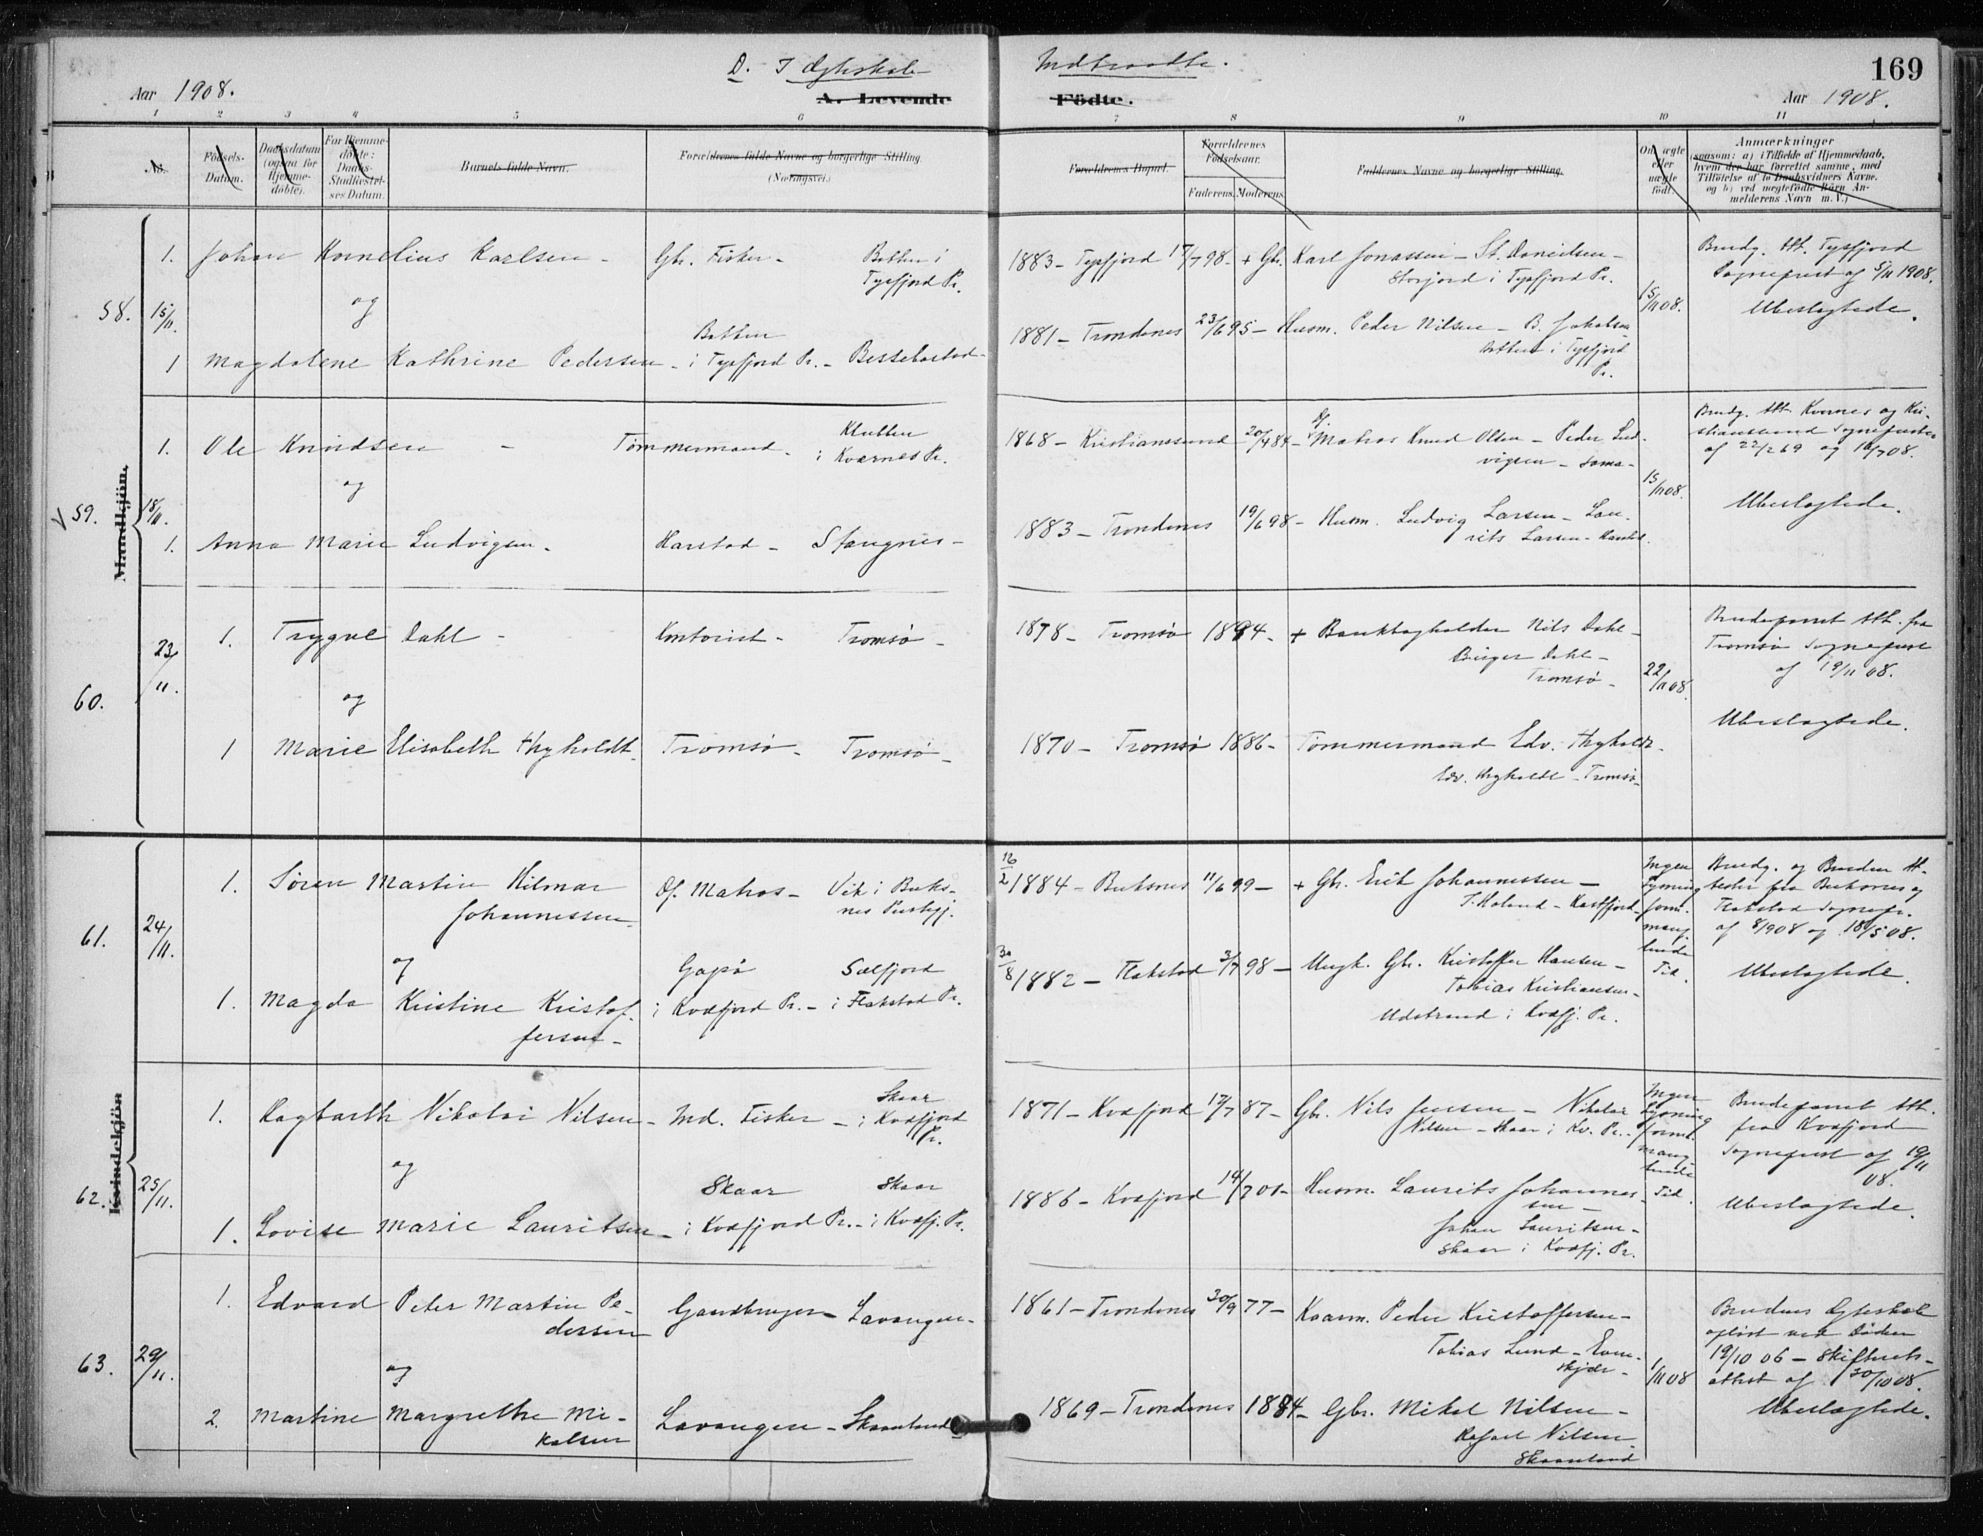 D. I Ægteskab Indtraadte.
169
Aar 1908.
A. Levende Födte.
Aar 1908.
1 2 3 4 5 6 7 8 9 10 11
No.
Födsels-Datum.
Daabsdatum (ogsaa for Hjemme-döbte).
For Hjemme-döbte: Daabs-Stadfæstel-ses Datum.
Barnets fulde Navn.
Forældrenes fulde Navne og borgerlige Stilling. (Næringsvei.)
Forældrenes Bopæl.
Forældrenes Födselsaar.
Faderens. Moderens.
Faddernes Navne og borgerlige Stilling.
Om ægte eller uægte födt.
Anmærkninger
(saasom: a) i Tilfælde af Hjemmedaab, hvem der har forrettet samme, med Tilföielse af to Daabsvidners Navne. og b) ved uægtefödte Börn An-melderens Navn m. V.)
Mandkjön.
58. 15/11.
1. Johan Kornelius Karlsen - Gbr. Fisker - Botten i Tysfjord Pr. 1883 - Tysfjord 17/7 98 - + Gbr. Karl Jonassen - St. Danielsen -
Storjord i Tysfjord Pr.
og
15/11 08.
Brudg. Att. Tysfjord
Sognepræst af 5/11 1908.
Ubeslægtede.
1 Magdalene Kathrine Pedersen - Botten i Tysfjord Pr. - Bessebostad - 1881 - Trondenes 23/6 95 - Husm. Peder Nilsen - B. Jakobsen
Botten i Tysfjord
Pr.
59. 18/11.
1. Ole Knudsen - Tømmermand - Klubben i Kvernes Pr. 1868 - Kristianssund 20/4 84 - Matros Knud Olsen - Peder Lud-
vigsen - Sama-
og
15/11 08.
Brudg. Att. Kvernes og Kri-
stianssund Sognepræster
af 22/2 69 og 16/7 08.
Ubeslægtede.
1. Anna Marie Ludvigsen - Harstad - Stangnes - 1883 - Trondenes 19/6 98 - Husm. Ludvig Larsen - Lau-
rits Larsen - Harstd.
60. 23/11.
1. Trygve Dahl - Kontorist - Tromsø - 1878 - Tromsø 1894 - + Bankbogholder Nils Dahl -
Birger Dahl -
Tromsø -
og
22/11 08.
Brudeparret Att. fra
Tromsø Sognepræst
af 19/11 08.
Ubeslægtede.
1 Marie Elisabeth Thyholdt - Tromsø - Tromsø - 1870 - Tromsø 1886 - Tømmermand Edv. Thyholdt -
Edv. Thyholdt - Tromsø -
Kvindekjön
61. 24/11.
1. Søren Martin Hilmar
Johannessen - Of. Matros - Vik i Buks-
nes Præstegj. 16/2 1884 - Buksnes 11/6 99 - + Gbr. Erik Johannessen -
T. Holand - Kasfjord -
og
Ingen
Lysning
form.
mang-
lende
Tid.
Brudg. og Bruden At-
tester fra Buksnes og
Flakstad Sognepr.
af 8/9 08 og 18/5 08.
Ubeslægtede.
1. Magda Kristine Kristof-
fersen - Gapø i Kvæfjord Pr. - Selfjord i Flakstad Pr. 30/8 1882 - Flakstad 3/7 98 - Ungk. Gbr. Kristoffer Hansen -
Tobias Kristiansen -
Udstrand i Kvæfj. Pr.
62. 25/11.
1. Hagbarth Nikolai Nilsen - Md. Fisker - Skaar i Kvæfjord Pr. 1871 - Kvæfjord 17/7 87 - Gbr. Nils Jensen - Nikolai
Nilsen - Skaar i Kv. Pr. -
og
Ingen
Lysning
formt.
mang-
lende
Tid.
Brudeparret Att.
fra Kvæfjord
Sognepræst af 19/11
08.
Ubeslægtede.
1. Lovise Marie Lauritsen - Skaar i Kvæfjord Pr. - Skaar i Kvæfj. Pr. 1886 - Kvæfjord 14/7 01 - Husm. Laurits Johannes-
sen -
Johan Lauritsen -
Skaar i Kvæfj. Pr.
63. 29/11.
1. Edvard Peter Martin Pe-
dersen Gaardbruger - Lavangen - 1861 - Trondenes 30/9 77 - Kaarm. Peder Kristoffersen -
Tobias Lund - Even-
skjær -
og
1/11 08
Brudens Ægteskab
opløst ved Døden
19/10 06 - Skifterets-
attest af 30/10 08.
Ubeslægtede.
2. Martine Margrethe Mi-
kalsen Lavangen - Skaanland 1869 - Trondenes 1884 - Gbr. Mikal Nilsen -
Nilsen
Skaanland